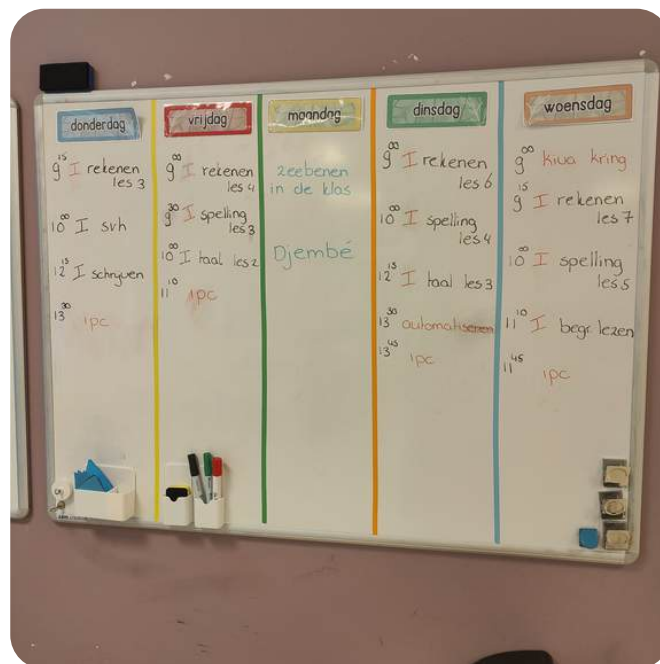 donderdag
9 15 I rekenen
les 3
10 00 I svh
12 15 I schrijven
13 30 ipc
vrijdag
9 00 I rekenen
les 4
9 30 I spelling
les 3
10 00 I taal les 2
11 10 ipc
maandag
zeebenen
in de klas
Djembé
dinsdag
9 00 I rekenen
les 6
10 00 I spelling
les 4
12 15 I taal les 3
13 30 automatiseren
13 45 ipc
woensdag
9 00 kiva kring
9 15 I rekenen
les 7
10 00 I spelling
les 5
11 10 I begr. lezen
11 45 ipc